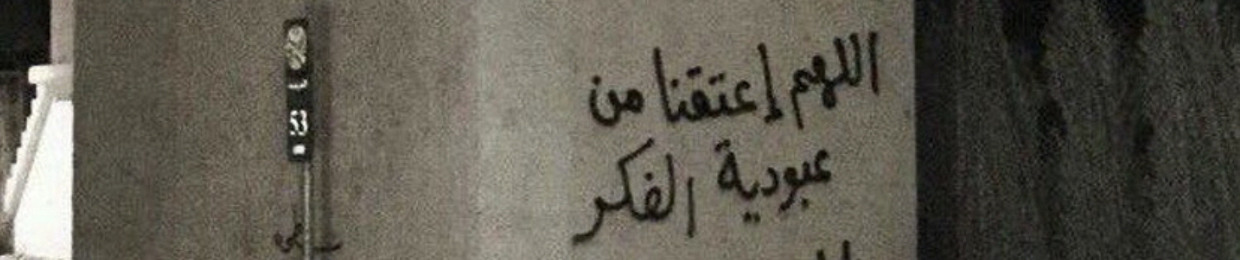 اللهم إعتقنا من
عبودية الفكر
53